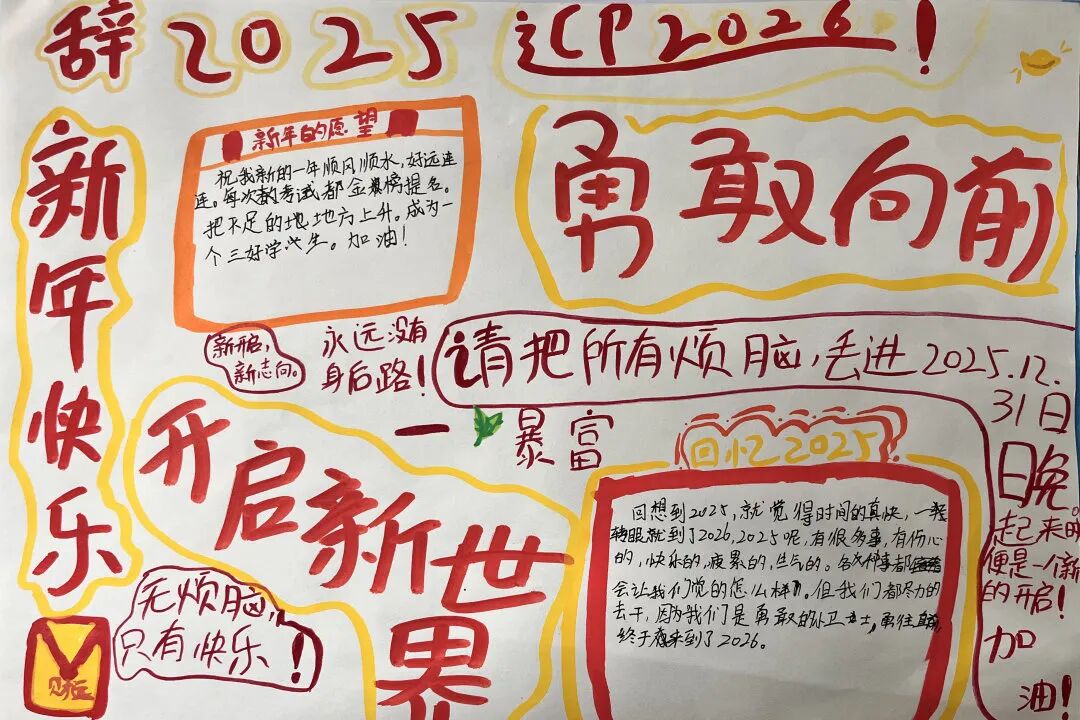 辞2025 迎2026!
新年快乐
新年的愿望
祝我新的一年顺风顺水,好远连
连。每次数考试都金榜提名。
把不足的地地方上升。成为一
个三好学生。加油!
勇敢向前
新开启,
新志向。
永远没有
身后路!
请把所有烦脑,丢进2025.12.
31日
晚。
起来
便是一个新
的开启!
加
油!
一 暴富
开启新世界
回忆2025
回想到2025,就觉得时间的真快,一
转眼就到了2026,2025呢,有很多事,有伤心
的,快乐的,疲累的,生气的。各种事都
会让我们觉的怎么样。但我们都尽力的
去干,因为我们是勇敢的卫士,勇往直前,
终于来到了2026。
无烦脑,
只有快乐!